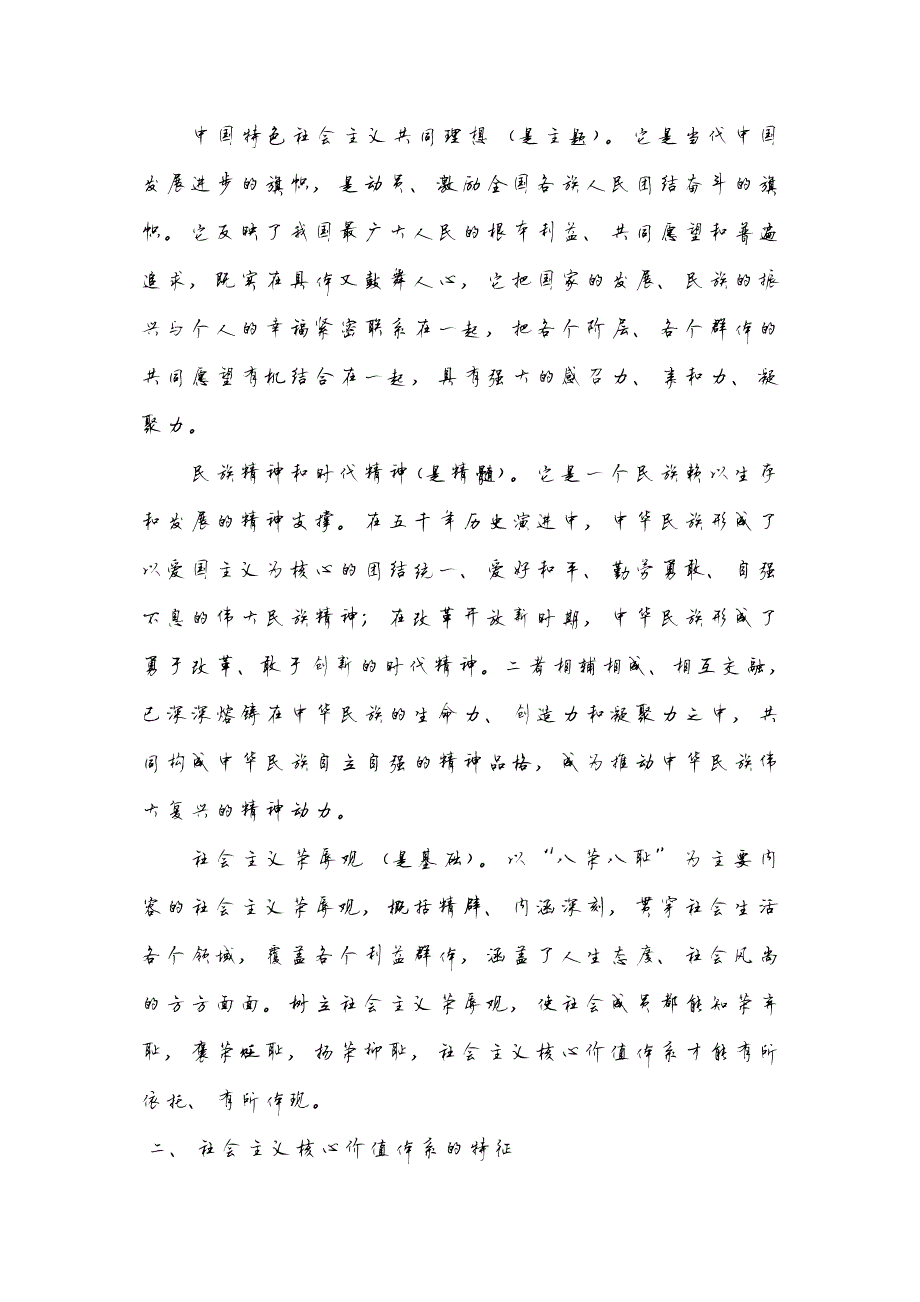 中国特色社会主义共同理想（是主题）。它是当代中国
发展进步的旗帜，是动员、激励全国各族人民团结奋斗的旗
帜。它反映了我国最广大人民的根本利益、共同愿望和普遍
追求，既实在具体又鼓舞人心，它把国家的发展、民族的振
兴与个人的幸福紧密联系在一起，把各个阶层、各个群体的
共同愿望有机结合在一起，具有强大的感召力、亲和力、凝
聚力。
民族精神和时代精神（是精髓）。它是一个民族赖以生存
和发展的精神支撑。在五千年历史演进中，中华民族形成了
以爱国主义为核心的团结统一、爱好和平、勤劳勇敢、自强
不息的伟大民族精神；在改革开放新时期，中华民族形成了
勇于改革、敢于创新的时代精神。二者相辅相成、相互交融，
已深深熔铸在中华民族的生命力、创造力和凝聚力之中，共
同构成中华民族自立自强的精神品格，成为推动中华民族伟
大复兴的精神动力。
社会主义荣辱观（是基础）。以“八荣八耻”为主要内
容的社会主义荣辱观，概括精辟、内涵深刻，贯穿社会生活
各个领域，覆盖各个利益群体，涵盖了人生态度、社会风尚
的方方面面。树立社会主义荣辱观，使社会成员都能知荣弃
耻，褒荣贬耻，扬荣抑耻，社会主义核心价值体系才能有所
依托、有所体现。
二、社会主义核心价值体系的特征